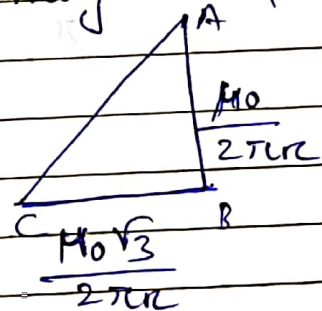 A
μ0
2πr
C
B
μ0√3
2πr